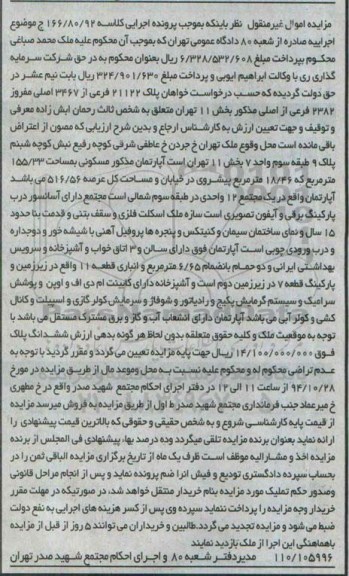 مزایده اموال غیرمنقول نظر باینکه بموجب پرونده اجرایی کلاسه ۱۶۶/۸۰/۹۲ ج موضوع
اجراییه صادره از شعبه ۸۰ دادگاه عمومی تهران که بموجب آن محکوم علیه ملک محمد صباغی
محکوم بپرداخت مبلغ ۶/۳۲۸/۵۳۲/۶۰۸ ریال بعنوان محکوم به در حق شرکت سرمایه
گذاری ری با وکالت ابراهیم ایوبی و پرداخت مبلغ ۳۲۴/۹۰۱/۶۳۰ ریال بابت نیم عشر در
حق دولت گردیده که حسب درخواست خواهان پلاک ۲۱۱۲۲ فرعی از ۳۴۶۷ اصلی مفروز
۲۳۸۲ فرعی از اصلی مذکور بخش ۱۱ تهران متعلق به شخص ثالث رحمان ابش زاده معرفی
و توقیف و جهت تعیین ارزش به کارشناس ارجاع و بدین شرح ارزیابی که مصون از اعتراض
باقی مانده است محل وقوع ملک تهران خ جردن خ عاطفی شرقی کوچه رفیع نبش کوچه شبنم
پلاک ۹ طبقه سوم واحد ۷ بخش ۱۱ تهران است آپارتمان مذکور مسکونی بمساحت ۱۵۵/۲۳
مترمربع که ۱۸/۴۶ مترمربع پیشروی در خیابان و مساحت کل عرصه ۵۱۶/۵۶ می باشد
آپارتمان واقع در یک مجتمع ۱۲ واحدی در طبقه سوم شمالی است مجتمع دارای آسانسور درب
پارکینگ برقی و آیفون تصویری است سازه ملک اسکلت فلزی و سقف بتنی و قدمت بنا حدود
۱۵ سال و نمای ساختمان سیمان و کنیتکس و پنجره ها پروفیل آهنی با شیشه خور و دوجداره
و درب ورودی چوبی است آپارتمان فوق دارای سالن و ۳ اتاق خواب و آشپزخانه و سرویس
بهداشتی ایرانی و دو حمام بانضمام ۶/۶۵ مترمربع و انباری قطعه ۱۱ واقع در زیرزمین و
پارکینگ قطعه ۷ در زیرزمین دوم است و آشپزخانه دارای کابینت ام دی اف و اوپن و پوشش
سرامیک و سیستم گرمایش پکیج و رادیاتور و شوفاژ و سرمایش کولر گازی و اسپیلت و کانال
کشی و کولر آبی می باشد آپارتمان دارای انشعاب آب و گاز و برق مشترک مستقل می باشد با
توجه به موقعیت ملک و کلیه حقوق متعلقه بدون لحاظ هر گونه بدهی ارزش ششدانگ پلاک
فوق ۱۴/۱۰۰/۰۰۰/۰۰۰ ریال جهت پایه مزایده تعیین می گردد و مقرر گردید با توجه به
عدم تراضی محکوم له و محکوم علیه نسبت به محل وموعد مال از طریق مزایده در مورخ
۹۴/۱۰/۲۸ از ساعت ۱۱ الی ۱۲ در دفتر اجرای احکام مجتمع شهید صدر واقع در خ مطهری
خ میرعماد جنب فرمانداری مجتمع شهید صدر ط اول از طریق مزایده به فروش میرسد مزایده
از قیمت پایه کارشناسی شروع و به شخص حقیقی و حقوقی که بالاترین قیمت پیشنهادی را
ارائه نماید بعنوان برنده مزایده تلقی میگردد وده درصد بهاء پیشنهادی فی المجلس از برنده
مزایده اخذ و مشارالیه موظف است ظرف یک ماه از تاریخ برگزاری مزایده الباقی ثمن را در
بحساب سپرده دادگستری تودیع و فیش آنرا ضم پرونده نماید و پس از انجام مراحل قانونی
وصدور حکم تملیک مورد مزایده بنام خریدار منتقل خواهد شد، در صورتیکه در مهلت مقرر
خریدار وجه مزایده را پرداخت ننماید سپرده وی پس از کسر هزینه های اجرایی به نفع دولت
ضبط می شود و مزایده تجدید می گردد.طالبین و خریداران می توانند ۵ روز از قبل از مزایده
باهماهنگی این اجرا از ملک بازدید نمایند
۱۱۰/۱۰۵۹۹۶ مدیر دفتر شعبه ۸۰ و اجرای احکام مجتمع شهید صدر تهران